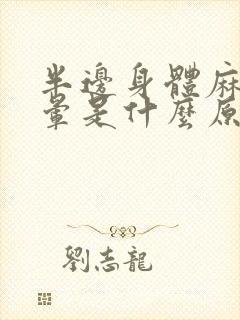 半邊身體麻
暈是什麼原
劉志龍